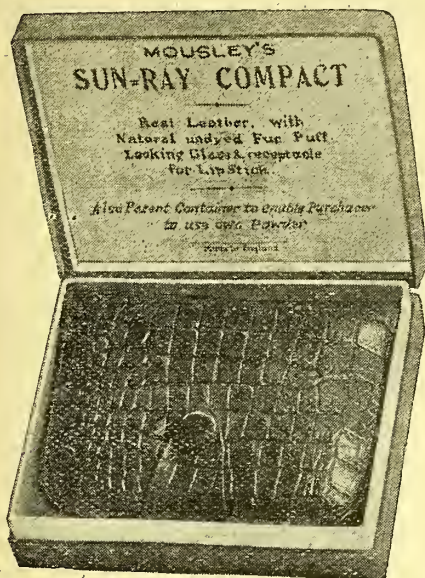 MOUSLEY'S
SUN-RAY COMPACT
Real Leather, with
Natural undyed Fur Puff
Looking Glass & receptacle
for Lip Stick.
Also Patent Container to enable Purchaser
to use own Powder
England